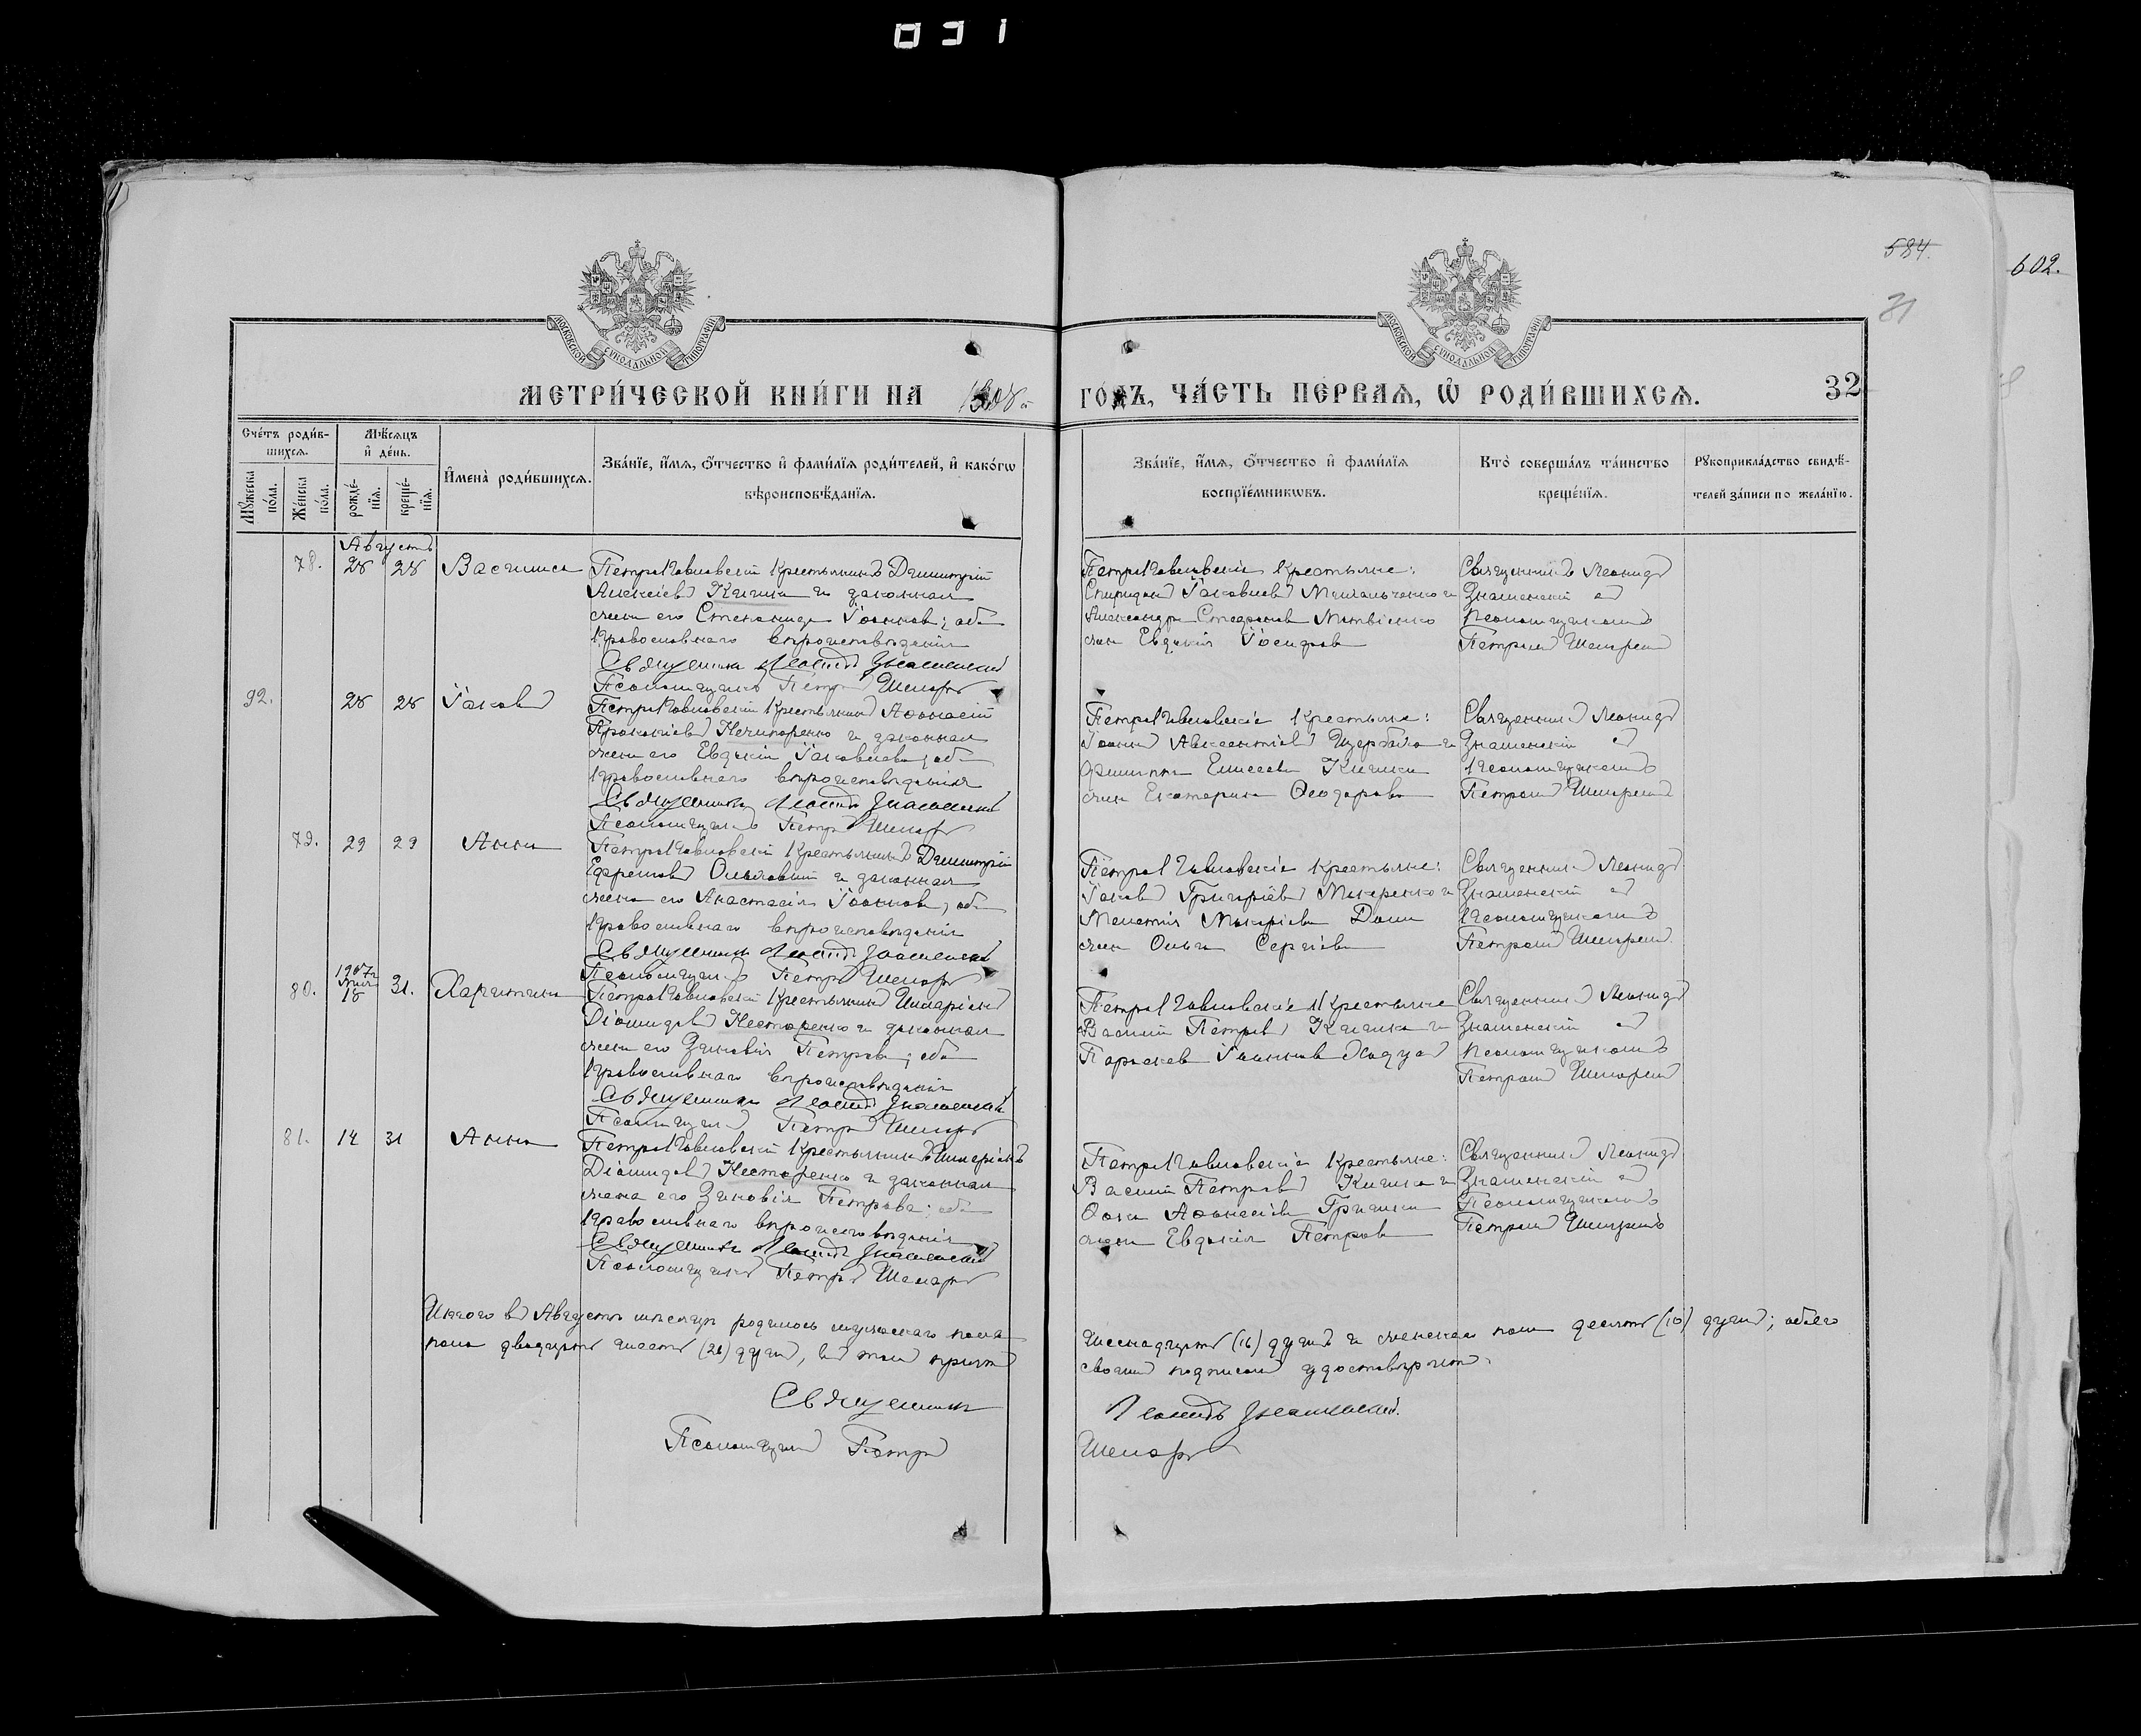 031
584.
602.
31
МОСКОВСКОЙ СѴНОДАЛЬНОЙ ТИПОГРАФІИ
МОСКОВСКОЙ СѴНОДАЛЬНОЙ ТИПОГРАФІИ
МЕТРИ́ЧЕСКОЙ КНИ́ГИ НА 1908 ГО́ДЪ, ЧА́СТЬ ПЕ́РВАѦ, Ѽ РОДИ́ВШИХСѦ.
32
Сче́тъ роди́в-
шихсѧ.
Мѣ́сѧцъ
и҆ де́нь.
Мꙋ́жеска
по́ла.
Же́нска
по́ла.
рожде́-
нїѧ.
креще́-
нїѧ.
И҆мена̀ роди́вшихсѧ.
Зва́нїе, и҆́мѧ, ѻ҆́тчество и҆ фами́лїѧ роди́телей, и҆ како́гѡ
вѣроисповѣ́данїѧ.
Зва́нїе, и҆́мѧ, ѻ҆́тчество и҆ фами́лїѧ
воспрїе́мникѡвъ.
Кто̀ соверша́лъ та́инство
креще́нїѧ.
Рꙋкоприкла́дство свидѣ́-
телей за́писи по жела́нїю.
Августъ
78. 28 28 Васи́лиса
Петропавловскій крестьянинъ Димитрій
Алексіевъ Кишка и законная
жена его Стефанида Іоаннова; оба
православнаго вѣроисповѣданія
Священникъ Леонидъ Знаменскій
Псаломщикъ Петръ Шепаръ
Петропавловскіе крестьяне:
Спиридонъ Іаковлевъ и
Александра Стефанова Матвіенко
жена Евдокія
Священникъ Леонидъ
Знаменскій съ
псаломщикомъ
Петромъ
92. 28 28 Іаковъ
Петропавловскій крестьянинъ Аѳанасій
Прокопіевъ Нечипоренко и законная
жена его Евдокія Іаковлева; оба
православнаго вѣроисповѣданія
Священникъ Леонидъ Знаменскій
Псаломщикъ Петръ Шепаръ
Петропавловскіе крестьяне:
Іоаннъ Авксентіевъ Щербина и
Филиппа Елисеева Кишки
жена Екатерина Ѳеодорова
Священникъ Леонидъ
Знаменскій съ
псаломщикомъ
Петромъ
79. 29 29 Анна
Петропавловскій крестьянинъ Димитрій
Ефремовъ и законная
жена его Анастасія Іоаннова; оба
православнаго вѣроисповѣданія
Священникъ Леонидъ Знаменскій
Псаломщикъ Петръ Шепаръ
Петропавловскіе крестьяне:
Іаковъ Григоріевъ Макаренко и
Макаріева
жена Ольга Сергіева
Священникъ Леонидъ
Знаменскій съ
псаломщикомъ
Петромъ
1907г
80. 18 31. Харитина
Петропавловскій крестьянинъ Иларіонъ
Діомидовъ Нестеренко и законная
жена его Зиновія Петрова; оба
православнаго вѣроисповѣданія
Священникъ Леонидъ Знаменскій
Псаломщикъ Петръ Шепаръ
Петропавловскіе крестьяне
Василій Петровъ Кишка и
Параскева Іоаннова
Священникъ Леонидъ
Знаменскій съ
псаломщикомъ
Петромъ
81. 14 31 Анна
Петропавловскій крестьянинъ Иларіонъ
Діомидовъ Нестеренко и законная
жена его Зиновія Петрова; оба
православнаго вѣроисповѣданія
Священникъ Леонидъ Знаменскій
Псаломщикъ Петръ Шепаръ
Петропавловскіе крестьяне:
Василій Петровъ Кишка и
Аѳанасіева
жена Евдокія Петрова
Священникъ Леонидъ
Знаменскій съ
Псаломщикомъ
Петромъ
Итого въ Августѣ мѣсяцѣ родилось мужескаго пола шеснадцать (16) душъ и женскаго пола десять (10) душъ; обоего
пола двадцать шесть (26) душъ, въ томъ причтъ своимъ подписомъ удостовѣряетъ.
Священникъ Леонидъ Знаменскій.
Псаломщикъ Петръ Шепаръ